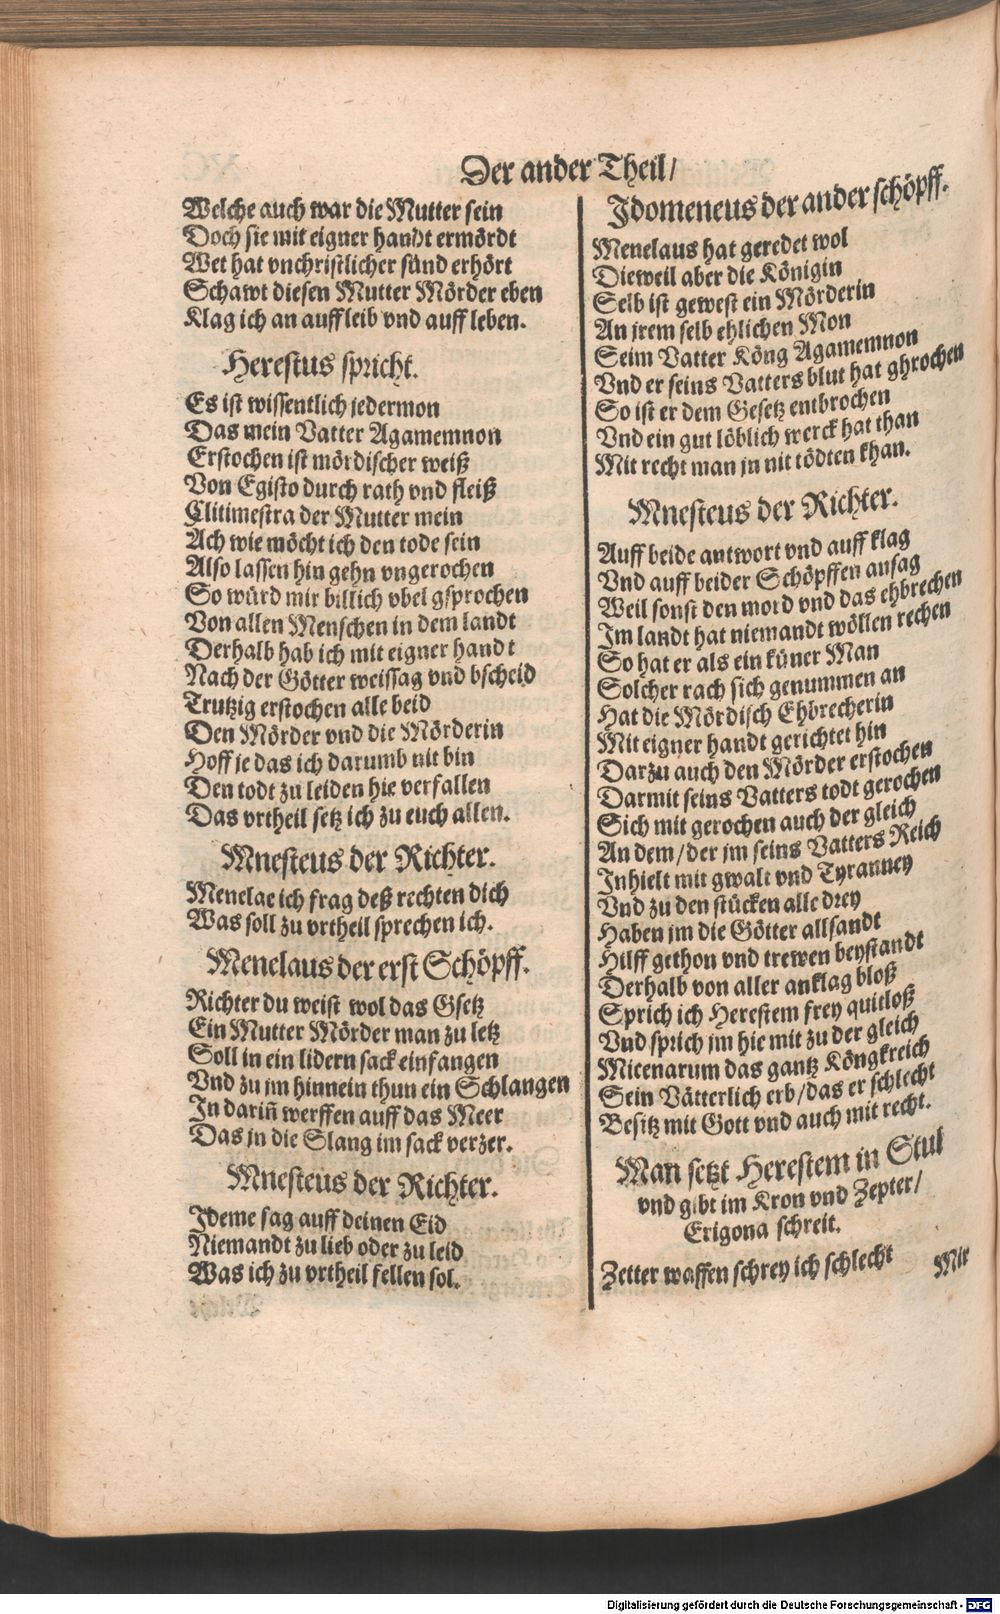 Der ander Theil/
Welche auch war die Mutter sein
Doch sie mit eigner handt ermördt
Wer hat vnchristlicher sünd erhört
Schawt diesen Mutter Mörder eben
Klag ich an auff leib vnd auff leben.
Herestus spricht.
Es ist wissentlich jedermon
Das mein Vatter Agamemnon
Erstochen ist mördischer weiß
Von Egisto durch rath vnd fleiß
Clitimestra der Mutter mein
Ach wie möcht ich den tode sein
Also lassen hin gehn vngerochen
So würd mir billich vbel gsprochen
Von allen Menschen in dem landt
Derhalb hab ich mit eigner handt
Nach der Götter weissag vnd bscheid
Trutzig erstochen alle beid
Den Mörder vnd die Mörderin
Hoff je das ich darumb nit bin
Den todt zu leiden hie verfallen
Das vrtheil setz ich zu euch allen.
Mnesteus der Richter.
Menelae ich frag deß rechten dich
Was soll zu vrtheil sprechen ich.
Menelaus der erst Schöpff.
Richter du weist wol das Gsetz
Ein Mutter Mörder man zu letz
Soll in ein lidern sack einfangen
Vnd zu jm hinnein thun ein Schlangen
In dariñ werffen auff das Meer
Das jn die Slang im sack verzer.
Mnesteus der Richter.
Ideme sag auff deinen Eid
Niemandt zu lieb oder zu leid
Was ich zu vrtheil fellen sol.
Idomeneus der ander schöpff.
Menelaus hat geredet wol
Dieweil aber die Königin
Selb ist gewest ein Mörderin
An jrem selb ehlichen Mon
Seim Vatter Köng Agamemnon
Vnd er seins Vatters blut hat ghrochen
So ist er dem Gesetz entbrochen
Vnd ein gut löblich werck hat than
Mit recht man jn nit tödten khan.
Mnesteus der Richter.
Auff beide antwort vnd auff klag
Vnd auff beider Schöpffen ansag
Weil sonst den mord vnd das ehbrechen
Im landt hat niemandt wöllen rechen
So hat er als ein küner Man
Solcher rach sich genummen an
Hat die Mördisch Ehbrecherin
Mit eigner handt gerichtet hin
Darzu auch den Mörder erstochen
Darmit seins Vatters todt gerochen
Sich mit gerochen auch der gleich
An dem/der jm seins Vatters Reich
Inhielt mit gwalt vnd Tyranney
Vnd zu den stücken alle drey
Haben jm die Götter allsandt
Hilff gethon vnd trewen beystandt
Derhalb von aller anklag bloß
Sprich ich Herestem frey quitloß
Vnd sprich jm hie mit zu der gleich
Micenarum das gantz Köngkreich
Sein Vätterlich erb/das er schlecht
Besitz mit Gott vnd auch mit recht.
Man setzt Herestem in Stul
vnd gibt im Kron vnd Zepter/
Erigona schreit.
Zetter waffen schrey ich schlecht
Mit
Digitalisierung gefördert durch die Deutsche Forschungsgemeinschaft - DFG